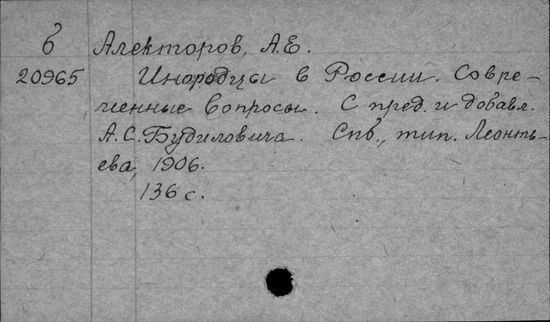 б Алекторов, А.Е.
20965 Инородцы в России. Совре-
менные вопросы. С пред. и добавл.
А.С. Будиловича. Спб., тип. Леонть-
ева, 1906.
136 с.